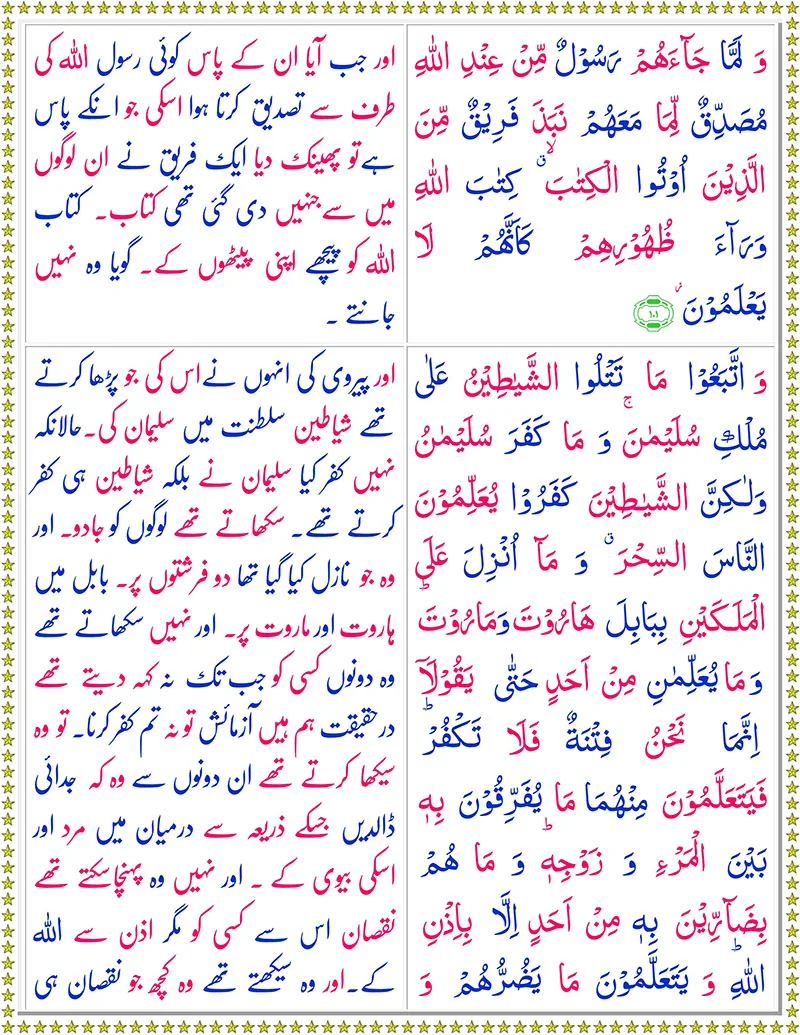 وَ لَمَّا جَآءَهُمْ رَسُوْلٌ مِّنْ عِنْدِ اللّٰهِ
مُصَدِّقٌ لِّمَا مَعَهُمْ نَبَذَ فَرِيْقٌ مِّنَ
الَّذِيْنَ اُوْتُوا الْكِتٰبَ ۙۗ كِتٰبَ اللّٰهِ
وَرَآءَ ظُهُوْرِهِمْ كَاَنَّهُمْ لَا
يَعْلَمُوْنَ ۫ ۱۰۱
اور جب آیا ان کے پاس کوئی رسول اللہ کی
طرف سے تصدیق کرتا ہوا اسکی جو انکے پاس
ہے تو پھینک دیا ایک فریق نے ان لوگوں
میں سے جنہیں دی گئی تھی کتاب۔ کتاب
اللہ کو پیچھے اپنی پیٹھوں کے۔ گویا وہ نہیں
جانتے ۔
وَ اتَّبَعُوْا مَا تَتْلُوا الشَّيٰطِيْنُ عَلٰى
مُلْكِ سُلَيْمٰنَ ۚ وَ مَا كَفَرَ سُلَيْمٰنُ
وَلٰكِنَّ الشَّيٰطِيْنَ كَفَرُوْا يُعَلِّمُوْنَ
النَّاسَ السِّحْرَ ۗ وَ مَاۤ اُنْزِلَ عَلَى
الْمَلَكَيْنِ بِبَابِلَ هَارُوْتَ وَمَارُوْتَ ؕ
وَ مَا يُعَلِّمٰنِ مِنْ اَحَدٍ حَتّٰى يَقُوْلَاۤ
اِنَّمَا نَحْنُ فِتْنَةٌ فَلَا تَكْفُرْ ؕ
فَيَتَعَلَّمُوْنَ مِنْهُمَا مَا يُفَرِّقُوْنَ بِهٖ
بَيْنَ الْمَرْءِ وَ زَوْجِهٖ ؕ وَ مَا هُمْ
بِضَآرِّيْنَ بِهٖ مِنْ اَحَدٍ اِلَّا بِاِذْنِ
اللّٰهِ ؕ وَ يَتَعَلَّمُوْنَ مَا يَضُرُّهُمْ وَ
اور پیروی کی انہوں نے اس کی جو پڑھا کرتے
تھے شیاطین سلطنت میں سلیمان کی۔ حالانکہ
نہیں کفر کیا سلیمان نے بلکہ شیاطین ہی کفر
کرتے تھے۔ سکھاتے تھے لوگوں کو جادو۔ اور
وہ جو نازل کیا گیا تھا دو فرشتوں پر۔ بابل میں
ہاروت اور ماروت پر۔ اور نہیں سکھاتے تھے
وہ دونوں کسی کو جب تک نہ کہہ دیتے تھے
درحقیقت ہم ہیں آزمائش تو نہ تم کفر کرنا۔ تو وہ
سیکھا کرتے تھے ان دونوں سے وہ کہ جدائی
ڈالدیں جسکے ذریعہ سے درمیان میں مرد اور
اسکی بیوی کے ۔ اور نہیں وہ پہنچاسکتے تھے
نقصان اس سے کسی کو مگر اذن سے اللہ
کے۔ اور وہ سیکھتے تھے وہ کچھ جو نقصان ہی